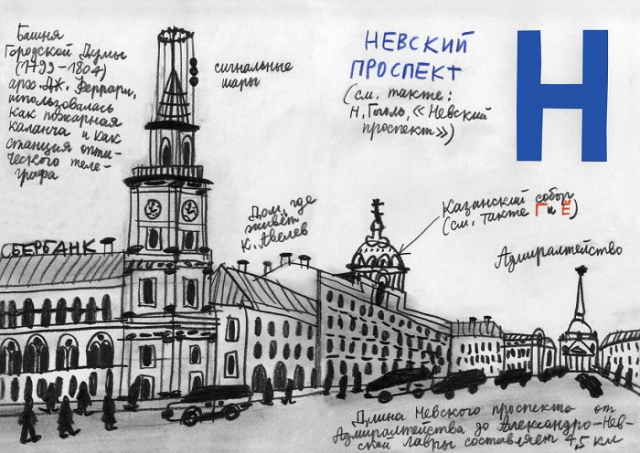 Башня
Городской Думы
(1799-1804)
арх. Дж. Феррари,
использовалась
как пожарная
каланча и как
станция опти-
ческого теле-
графа
сигнальные
шары
НЕВСКИЙ
ПРОСПЕКТ
(см. также:
Н. Гоголь, «Невский
проспект»)
Н
Дом, где
живет
К. Авелев
Казанский собор
(см. также Г и Ё)
Адмиралтейство
СБЕРБАНК
Длина Невского проспекта от
Адмиралтейства до Александро-Нев-
ской лавры составляет 4,5 км